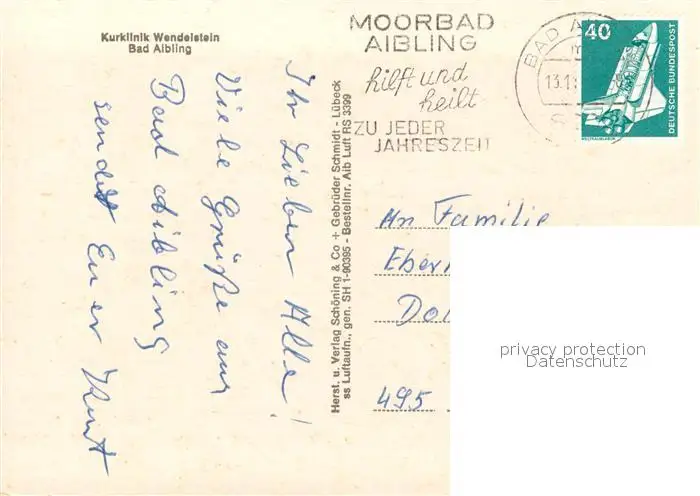 Kurklinik Wendelstein
Bad Aibling
Ihr Lieben Alle!
Viele Grüße aus
Bad Aibling
sendet Euer
Herst. u. Verlag Schöning & Co + Gebrüder Schmidt - Lübeck
ss Luftaufn., gen. SH 1-90395 - Bestellnr. Aib Luft RS 3399
MOORBAD
AIBLING
hilft und
heilt
ZU JEDER
JAHRESZEIT
BAD A
13.1
40
DEUTSCHE BUNDESPOST
WELTRAUMLABOR
An Familie
Eber
Do
495
privacy protection
Datenschutz